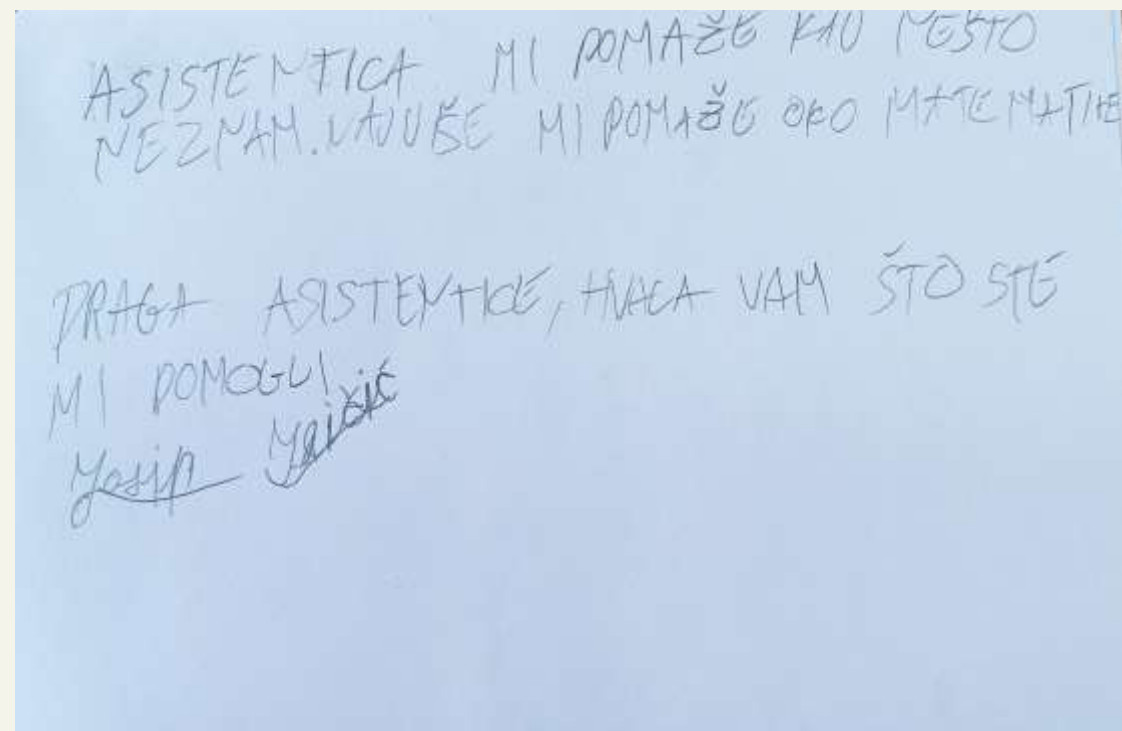 ASISTENTICA MI POMAŽE KAO NEŠTO
NEZNAM. NAJVIŠE MI POMAŽE OKO MATEMATIKE
DRAGA ASISTENTICE, HVALA VAM ŠTO STE
MI POMOGLI
Josip